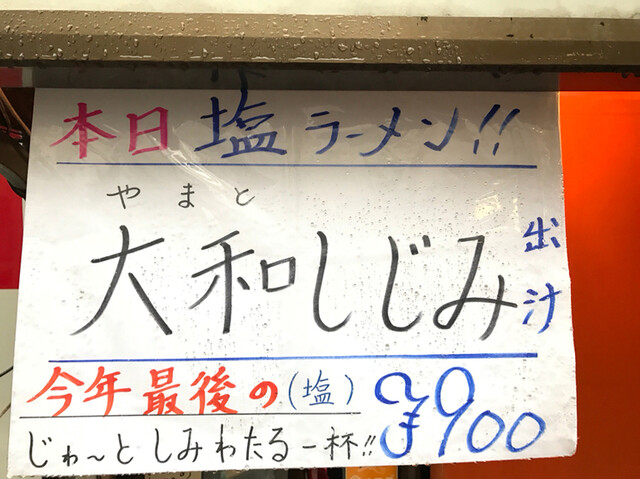 本日 塩ラーメン!!
やまと
大和しじみ出汁
今年最後の(塩) ¥900
じゎ〜と しみわたる一杯!!